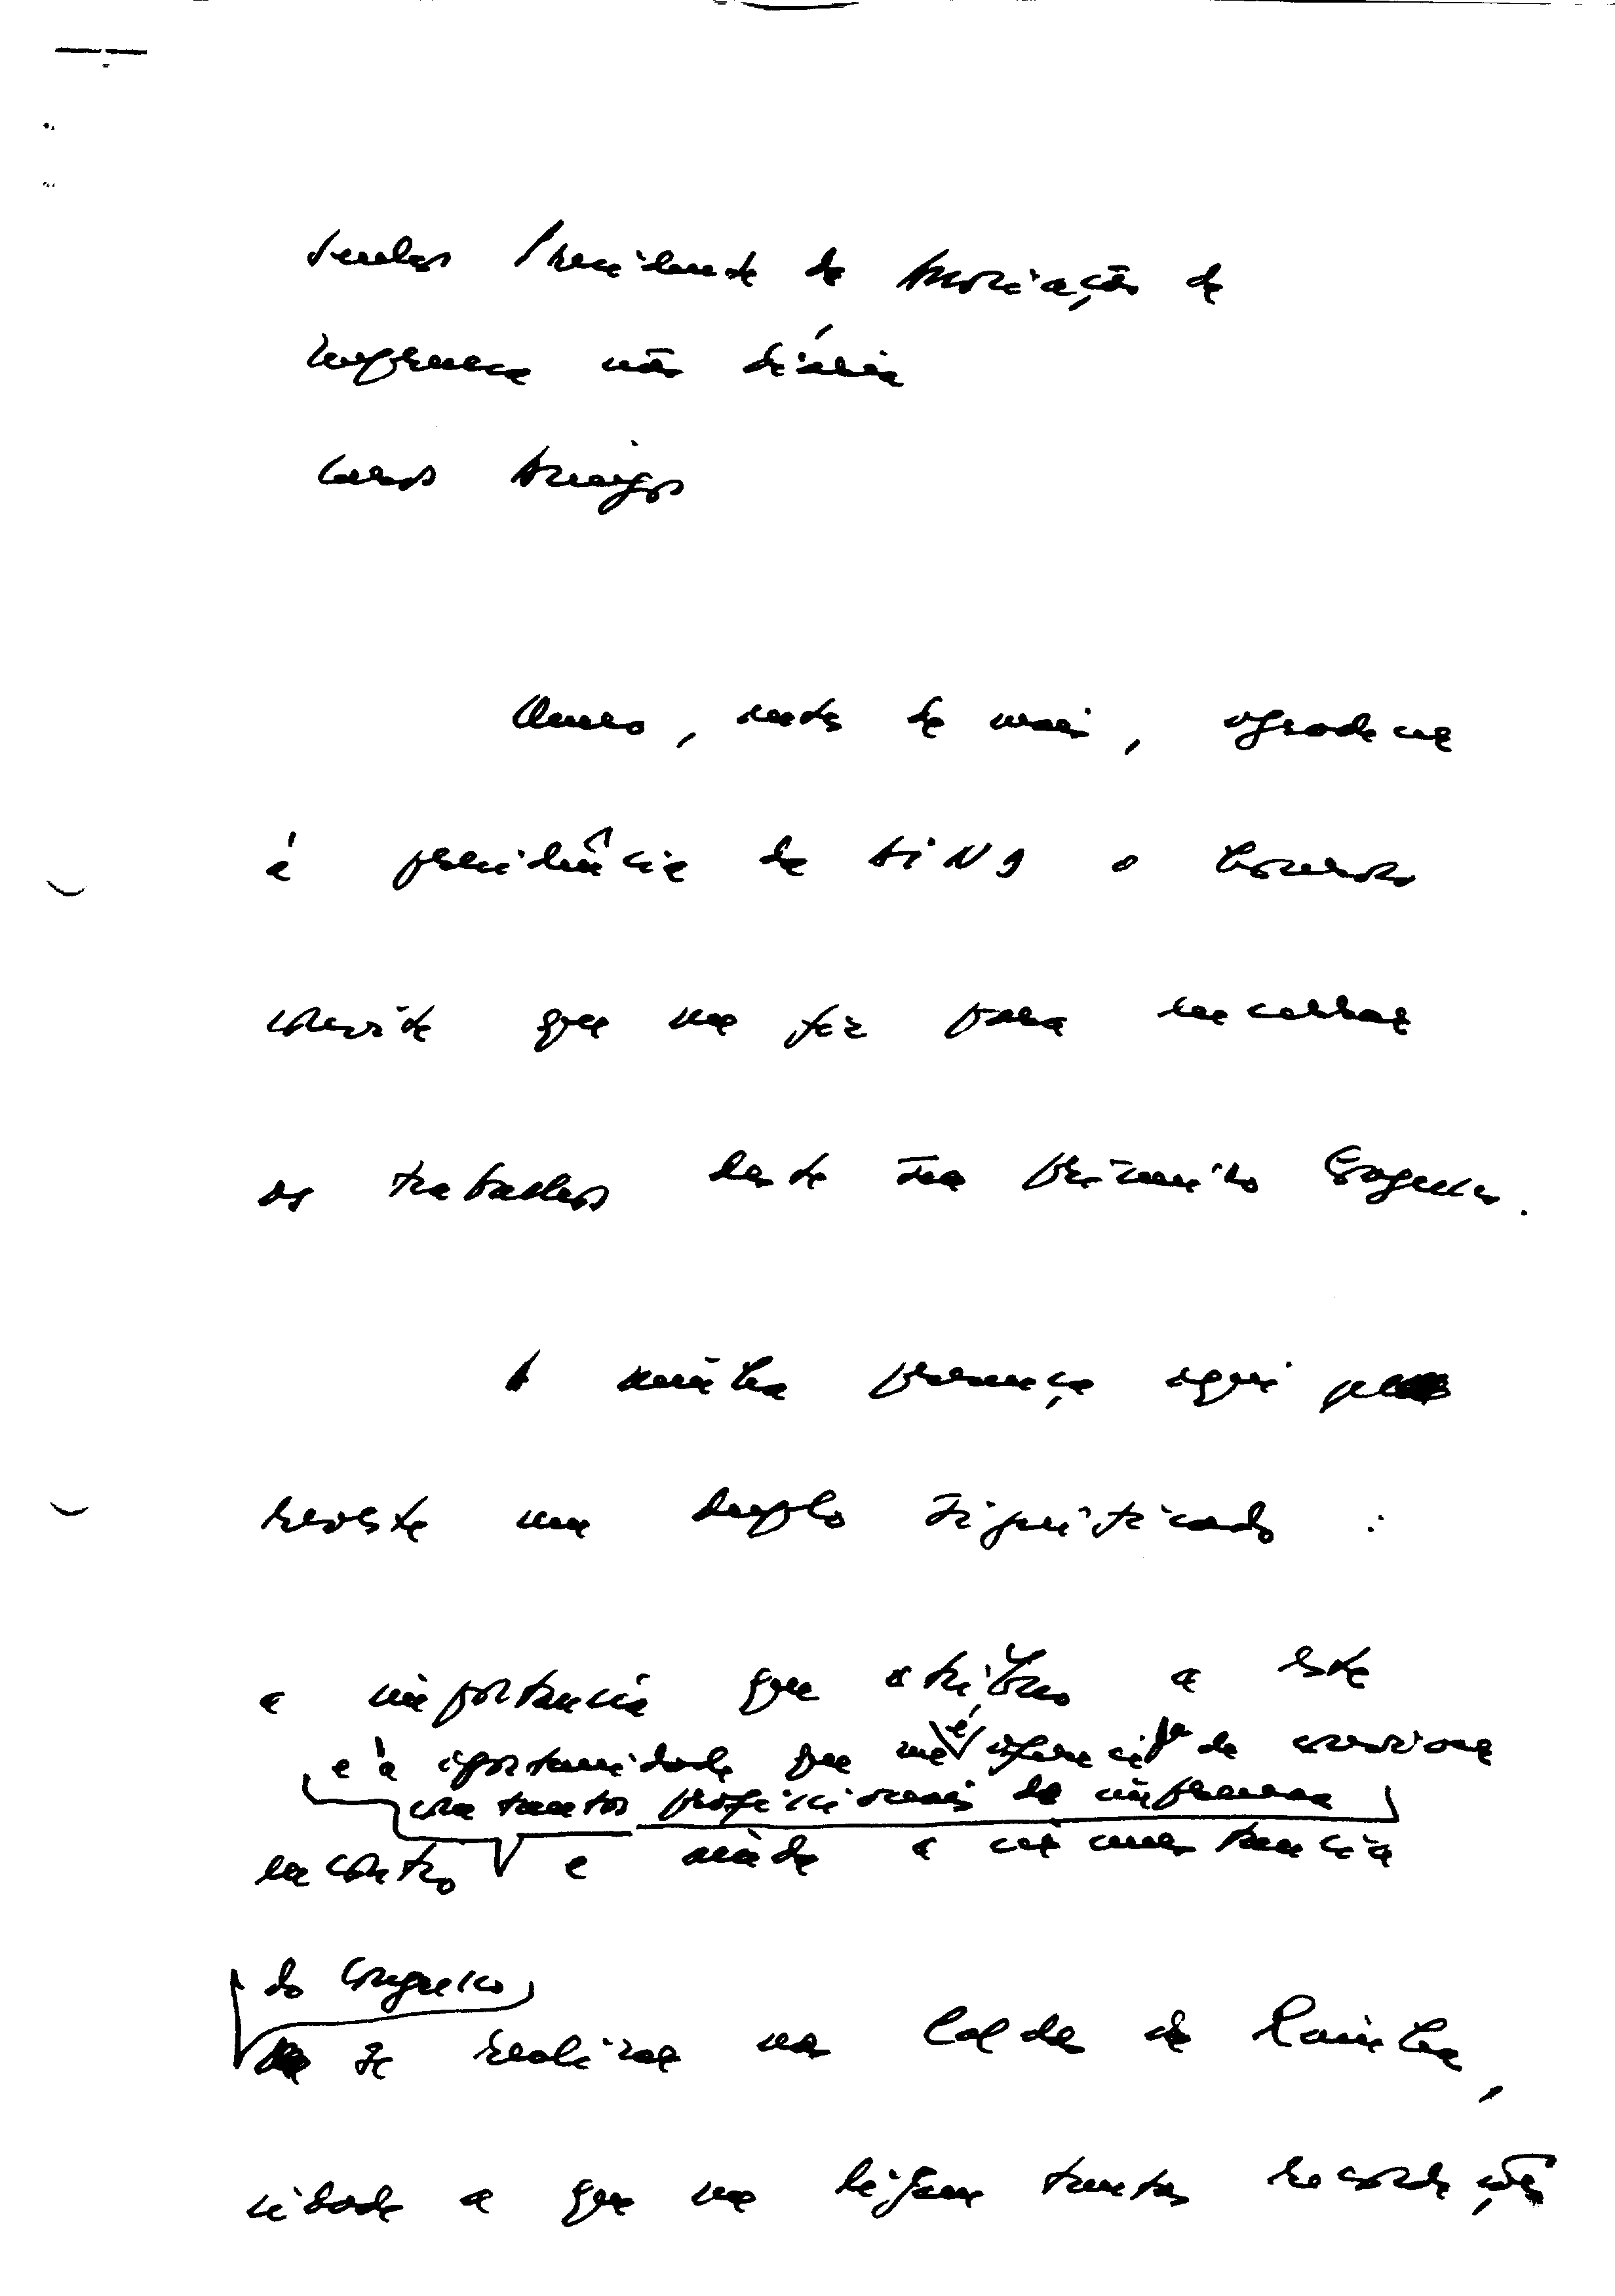 Senhor Presidente da Associação da
Imprensa não diária
Caros Amigos
Quero, antes de mais, agradecer
à presidência da AIND o honroso
convite que me fez para encerrar
os trabalhos deste seu primeiro Congresso.
A minha presença aqui
reveste um duplo significado :
a importância que atribuo a este
e à oportunidade que me é oferecida de conviver
com tantos profissionais da imprensa
encontro e ainda a circunstância
do Congresso
se realizar nas Caldas da Rainha,
cidade a que me ligam tantas recordações